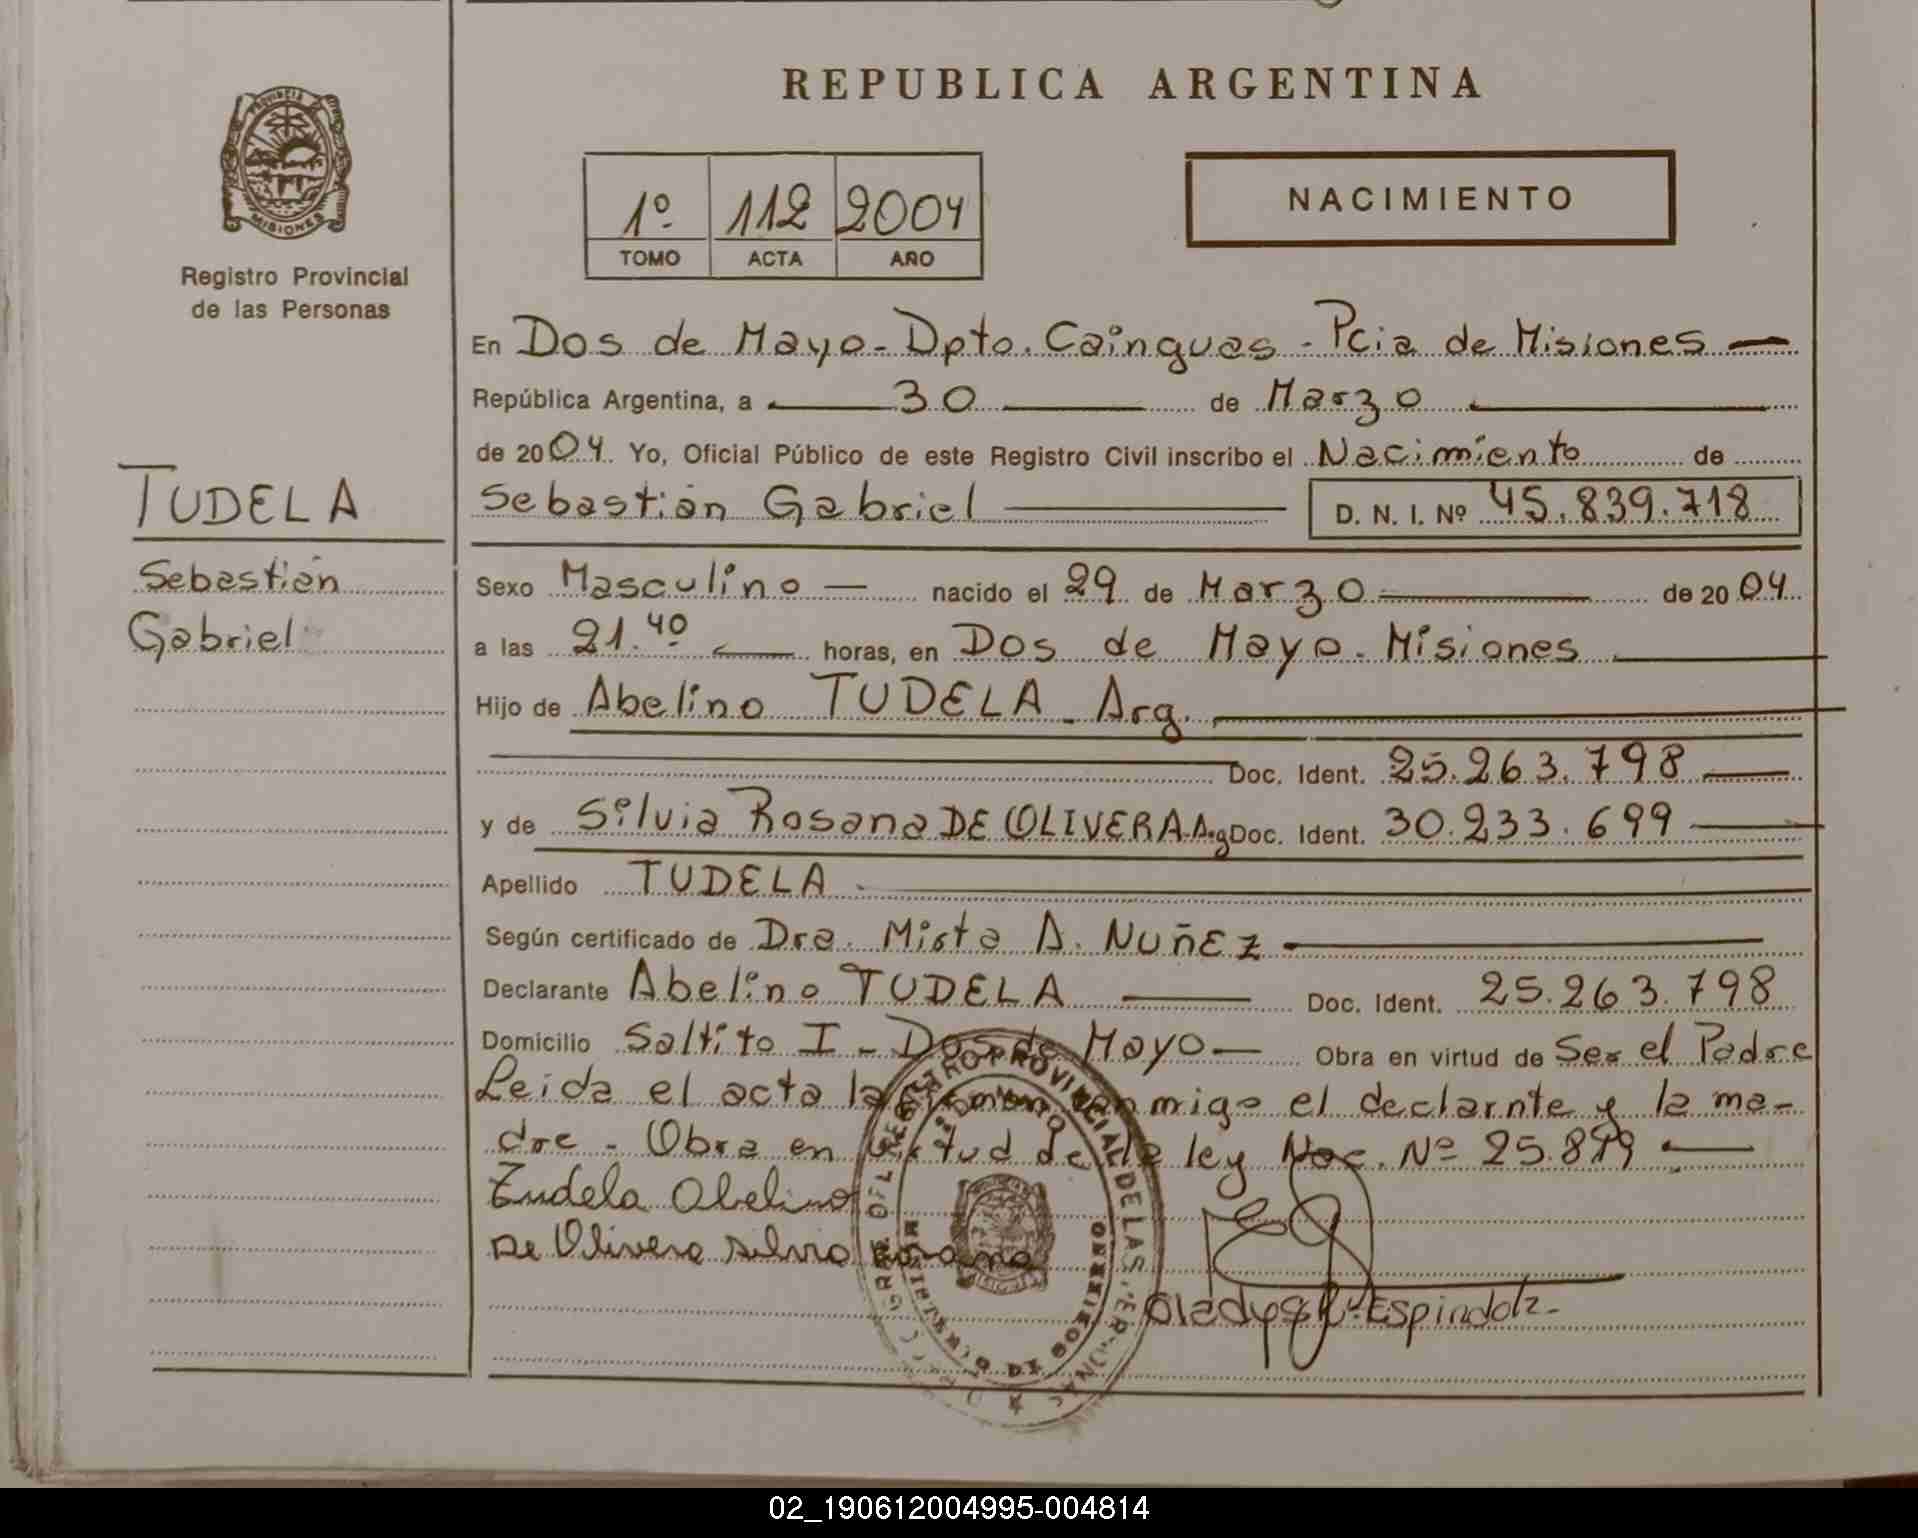 REPUBLICA ARGENTINA
PROVINCIA
MISIONES
Registro Provincial
de las Personas
1º 112 2004
TOMO ACTA AÑO
NACIMIENTO
En Dos de Mayo - Dpto. Cainguas - Pcia de Misiones
República Argentina, a 30 de Marzo
de 2004. Yo, Oficial Público de este Registro Civil inscribo el Nacimiento de
Sebastián Gabriel D. N. I. Nº 45.839.718
TUDELA
Sebastián
Gabriel
Sexo Masculino nacido el 29 de Marzo de 2004
a las 21.40 horas, en Dos de Mayo - Misiones
Hijo de Abelino TUDELA - Arg.
Doc. Ident. 25.263.798
y de Silvia Rosana DE OLIVERA - Arg Doc. Ident. 30.233.699
Apellido TUDELA
Según certificado de Dra. Mirta A. NUÑEZ
Declarante Abelino TUDELA Doc. Ident. 25.263.798
Domicilio Saltito I - Dos de Mayo Obra en virtud de Ser el Padre
Leida el acta la firman conmigo el declarnte y la ma-
dre - Obra en virtud de la ley Nac. Nº 25.819
Tudela Abelino
De Olivera Silvia Rosana
Gladys R. Espindola
REGISTRO PROVINCIAL DE LAS PERSONAS
MINISTERIO DE GOBIERNO
02_190612004995-004814